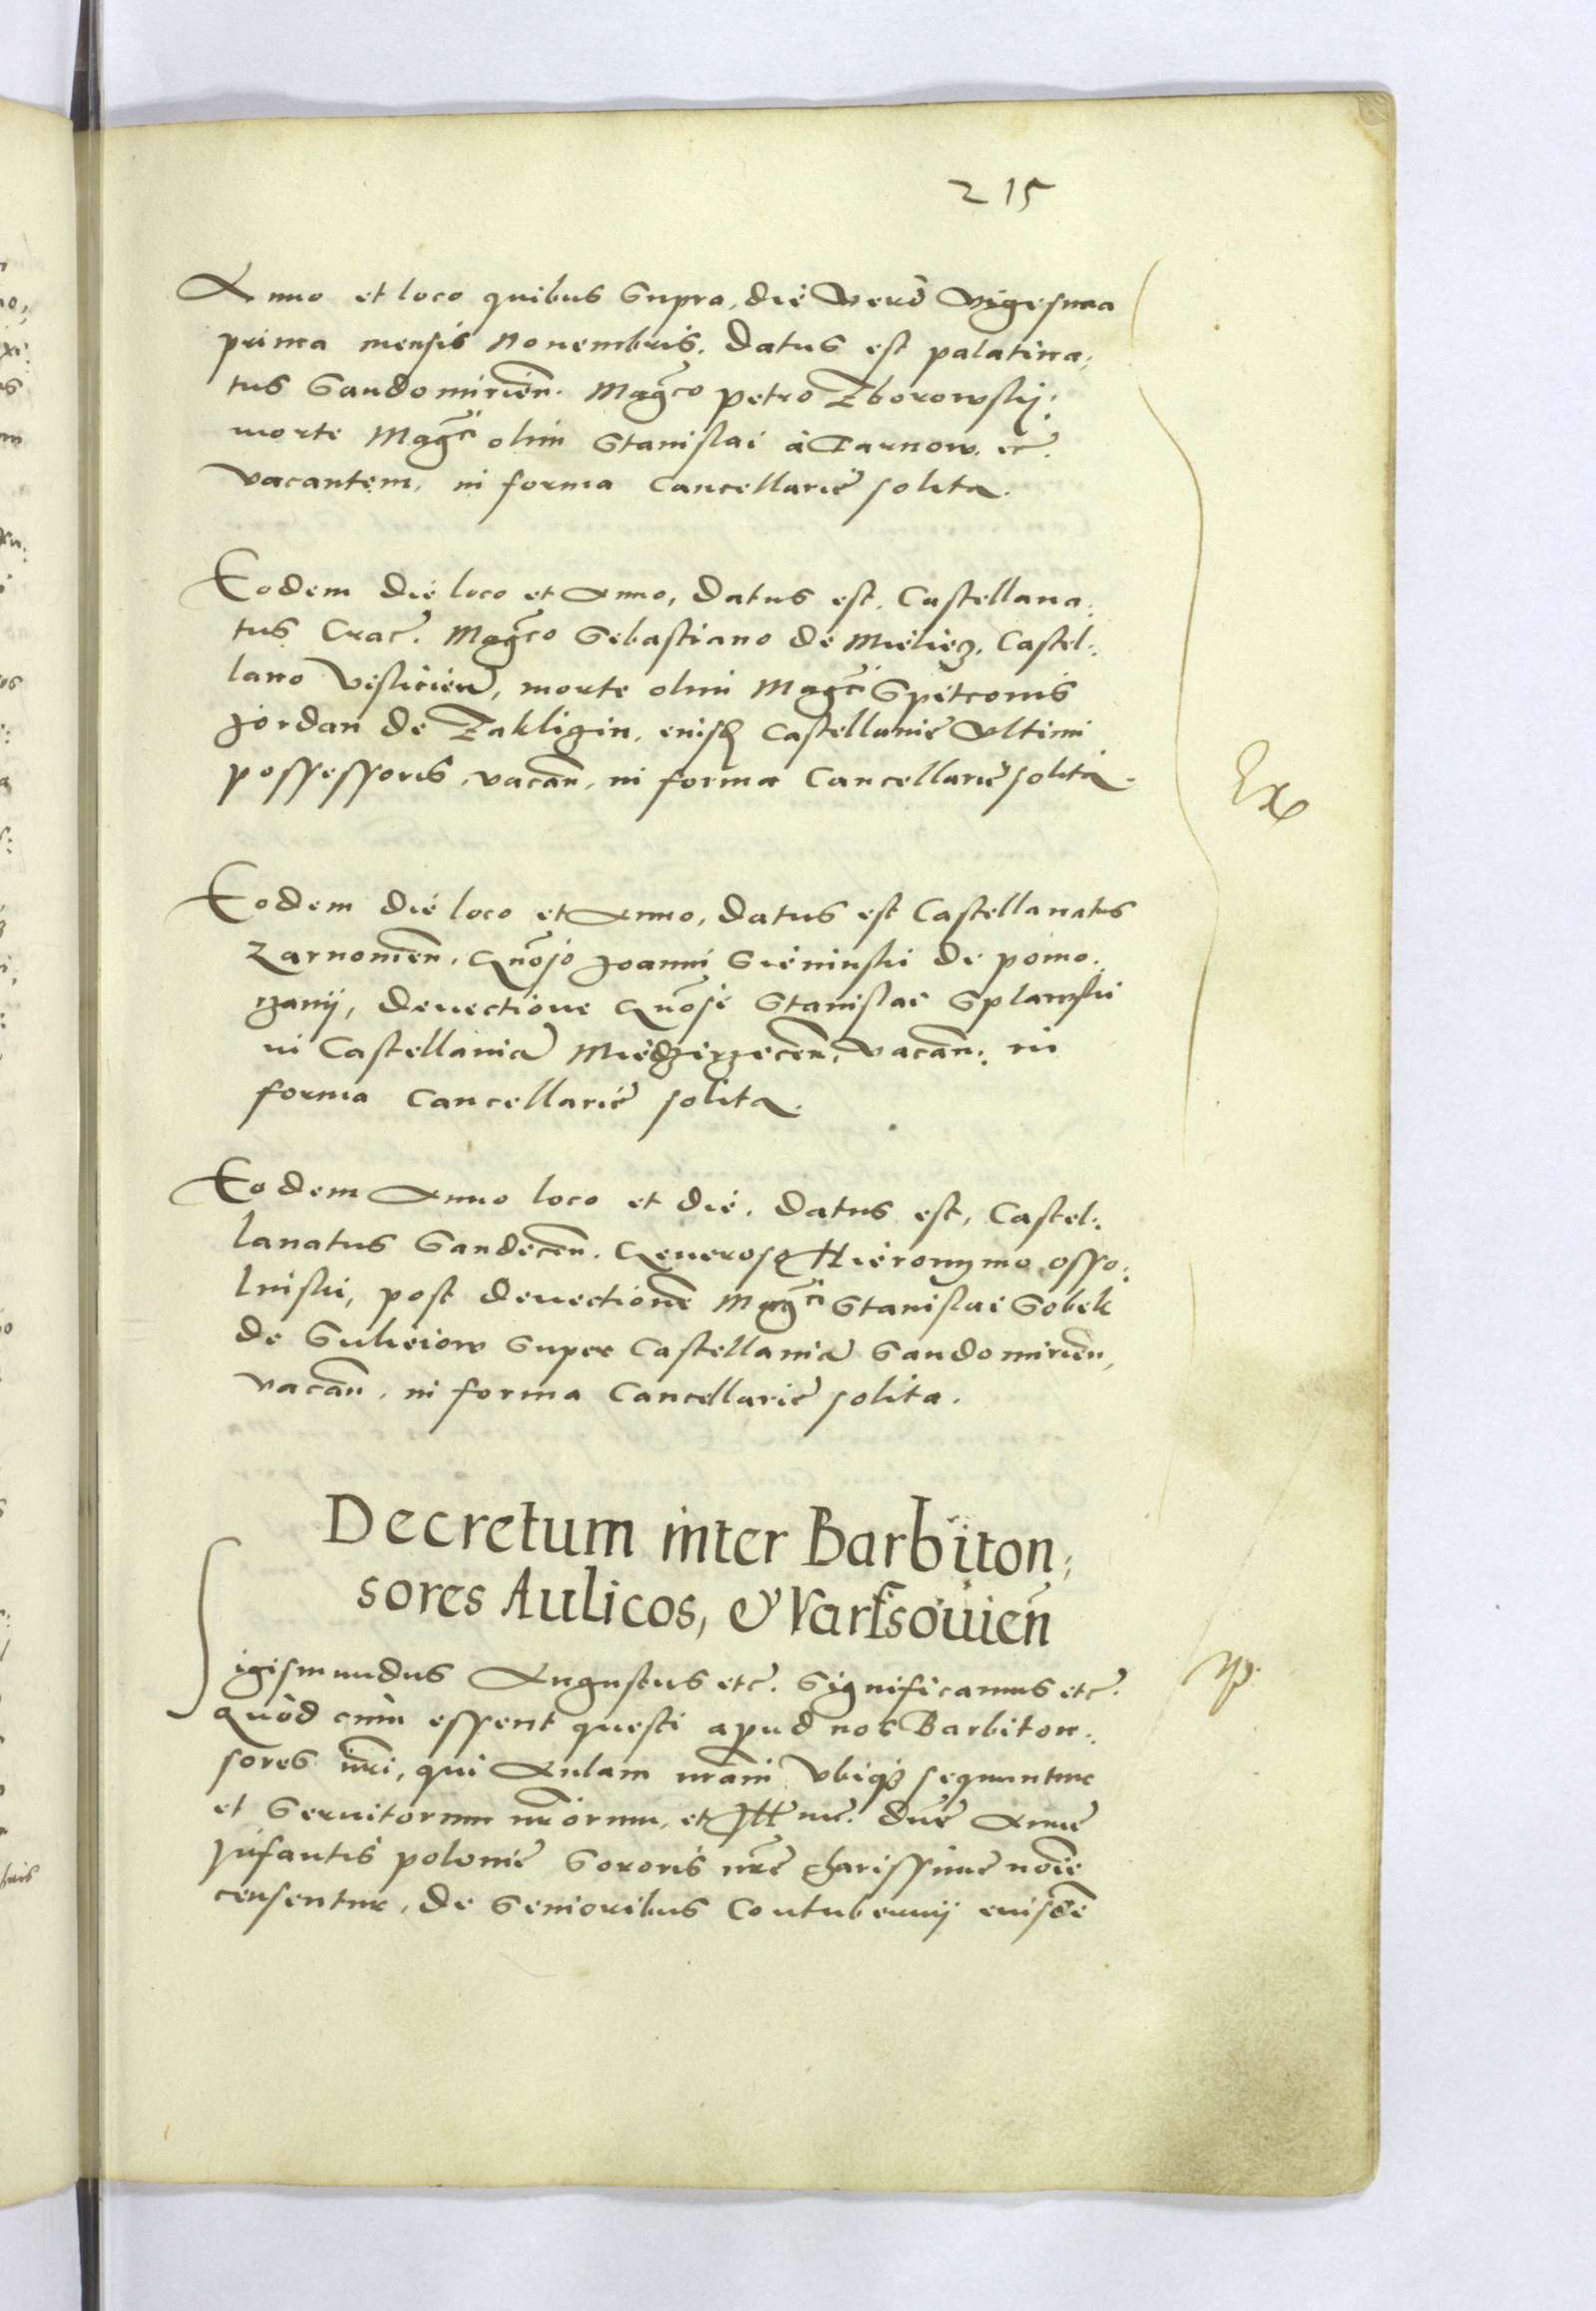 215
Anno et loco quibus Supra, die Vero Vigesima
prima mensis Nouembris. Datus est palatina:
tus Sandomirień. Magco petro Zborowskj:
morte Magci olim Stanislai à Tarnow. etc.
Vacantem, in forma Cancellarie solita.
Eodem die loco et Anno, Datus est, Castellana:
tus Crac. Magco Sebastiano de Mielięz. Castel:
lano Visliciens, morte olim Magci Spitconis
Jordan de Zakligin, eiusq Castellanie Vltimi
possessoris, vacań, in forma Cancellarie solita.
Eodem die loco et Anno, datus est Castellanatus
Zarnowień. Gnoso Joanni Sieninski de pomo:
rzanÿ, deuectione Gnosi Stanislai Splawski
in Castellania Miedzirzeceń, vacań: in
forma Cancellarie solita.
Eodem Anno loco et die. Datus est, Castel:
lanatus Sandeceń. Generoso Hieronymo osso:
linski, post deuectione Magci Stanislai Sobek
de Suleiow Super Castellania Sandomirień,
vacań, in forma Cancellarie solita.
Decretum inter Barbiton:
sores Aulicos, & Varssouień
Sigismundus Augustus etc. Significamus etc.
Quòd cùm essent questi apud nos Barbiton:
sores nri, qui Aulam nram Vbiq sequuntur
et Seruitorum nrorum, et Ill me. dne Anne
Infantis polonie Sororis nre charissime noie
censentur, de Senioribus Contubernÿ eiusdē
Ex